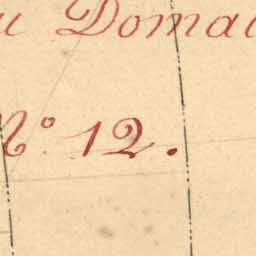 Domai
N° 12.